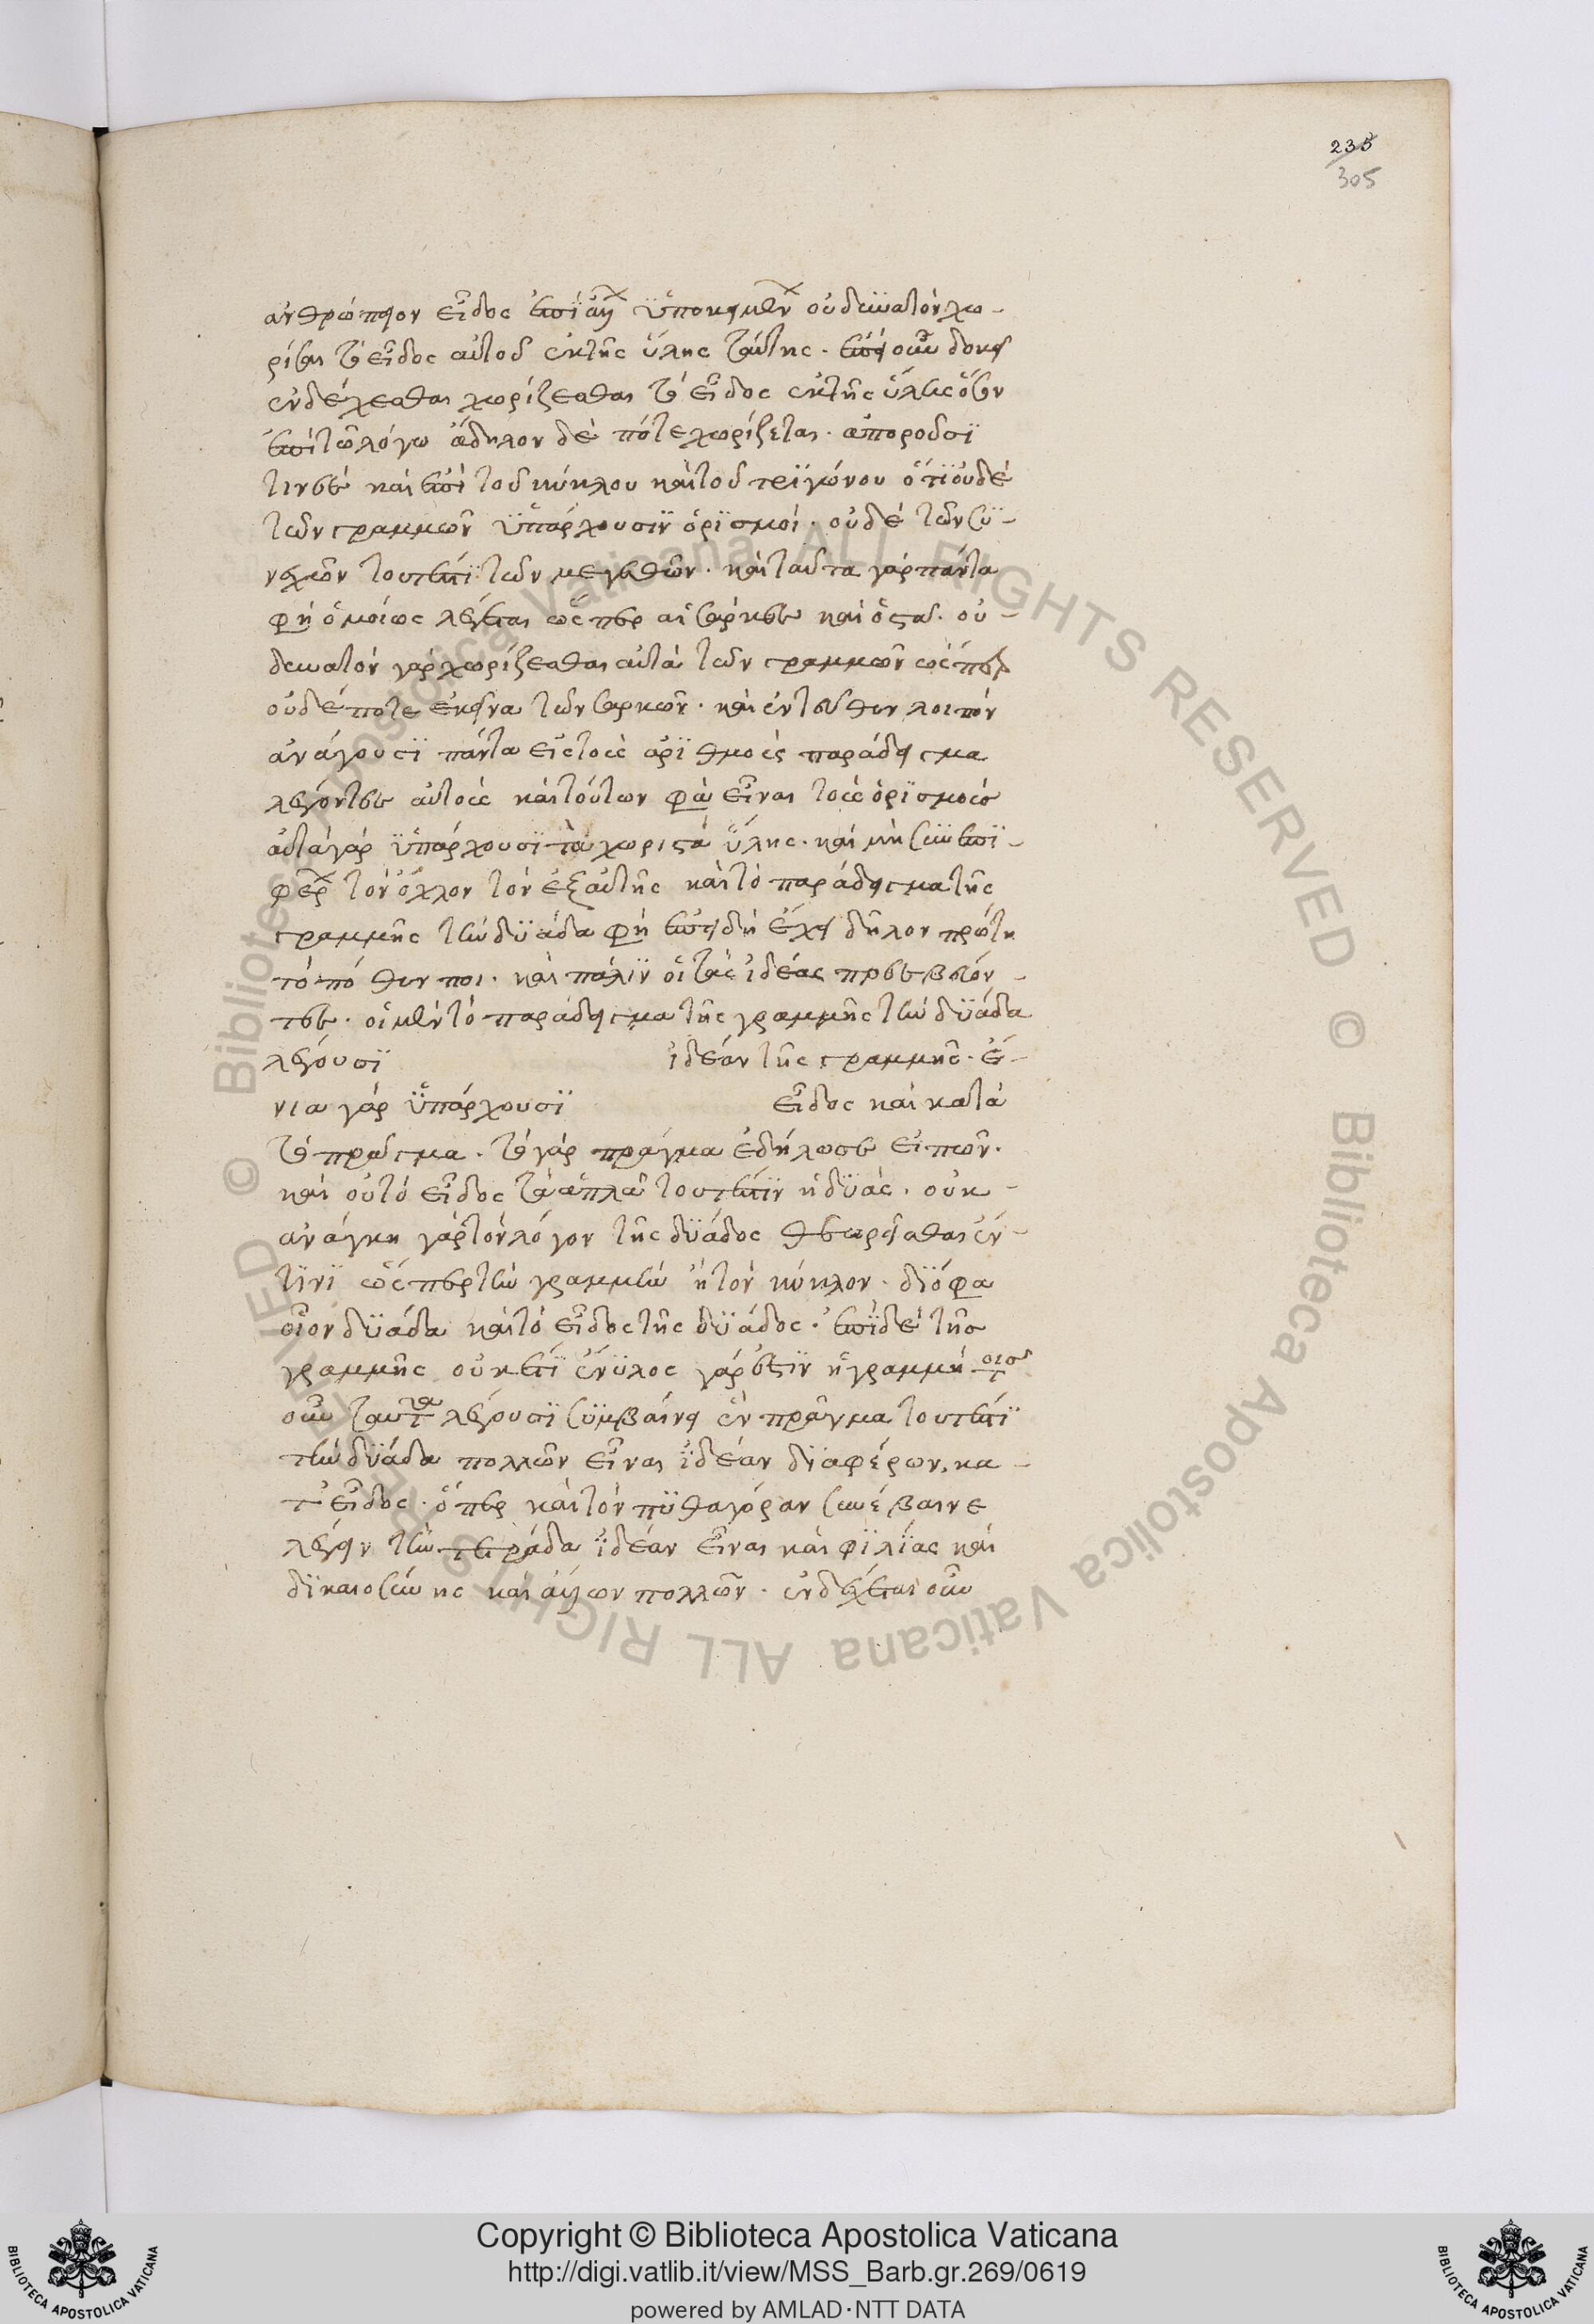 235
305
ἀνθρώπειον εἶδος ἐπὶ ἄλλων ὑποκειμένων οὐ δυνατὸν χω-
ρίσαι τὸ εἶδος αὐτοῦ ἐκ τῆς ὕλης ταύτης. ἐπεὶ οὖν δοκεῖ
ἐνδέχεσθαι χωρίζεσθαι τὸ εἶδος ἐκ τῆς ὕλης ὅσον
ἐπὶ τῷ λόγῳ ἄδηλον δὲ πότε χωρίζεται. ἀποροῦσι
τινὲς καὶ ἐπὶ τοῦ κύκλου καὶ τοῦ τριγώνου ὅτι οὐδὲ
τῶν γραμμῶν ὑπάρχουσιν ὁρισμοί. οὐδὲ τῶν συ-
νεχῶν τουτέστι τῶν μεγεθῶν. καὶ ταῦτα γὰρ πάντα
φησὶ ὁμοίως λέγεται ὥσπερ αἱ σάρκες καὶ ὀστᾶ. οὐ
δυνατὸν γὰρ χωρίζεσθαι αὐτὰ τῶν γραμμῶν ὥσπερ
οὐδέποτε ἐκεῖνα τῶν σαρκῶν. καὶ ἐντεῦθεν λοιπὸν
ἀνάγουσι πάντα εἰς τοὺς ἀριθμοὺς παράδειγμα
λέγοντες αὐτοὺς καὶ τούτων φασὶ εἶναι τοὺς ὁρισμοὺς
αὐτὰ γὰρ ὑπάρχουσι τὰ χωριστὰ ὕλης. καὶ μὴ συνεπι-
φέρων τὸν ὄχλον τὸν ἐξ αὐτῆς καὶ τὸ παράδειγμα τῆς
γραμμῆς τὴν δυάδα φησὶ ἐπειδὴ ἔχει δῆλον πρώτη
τὸ πόθεν ποι. καὶ πάλιν οἱ τὰς ἰδέας πρεσβεύον-
τες. οἱ μὲν τὸ παράδειγμα τῆς γραμμῆς τὴν δυάδα
λέγουσι ἰδέαν τῆς γραμμῆς. ἔ-
νια γὰρ ὑπάρχουσι εἶδος καὶ κατὰ
τὸ πρᾶγμα. τὸ γὰρ πρᾶγμα ἐδήλωσε εἰπών.
καὶ οὐ τὸ εἶδος τὰ ἁπλᾶ τουτέστιν ἡ δυάς. οὐκ
ἀνάγκη γὰρ τὸν λόγον τῆς δυάδος θεωρεῖσθαι ἔν
τινι ὥσπερ τὴν γραμμὴν ἢ τὸν κύκλον. διό φασι
οἷον δυάδα καὶ τὸ εἶδος τῆς δυάδος. ἐπὶ δὲ τῆς
γραμμῆς οὐκέτι ἔνυλος γάρ ἐστιν ἡ γραμμὴ τοῖς
οὖν ταῦτα λέγουσι συμβαίνει ἓν πρᾶγμα τουτέστι
τὴν δυάδα πολλῶν εἶναι ἰδέαν διαφέρων, κα-
τ' εἶδος. ὅπερ καὶ τὸν πυθαγόραν συνέβαινε
λέγειν τὴν τετράδα ἰδέαν εἶναι καὶ φιλίας καὶ
δικαιοσύνης καὶ ἄλλων πολλῶν. ἐνδέχεται οὖν
Copyright © Biblioteca Apostolica Vaticana
http://digi.vatlib.it/view/MSS_Barb.gr.269/0619
powered by AMLAD·NTT DATA